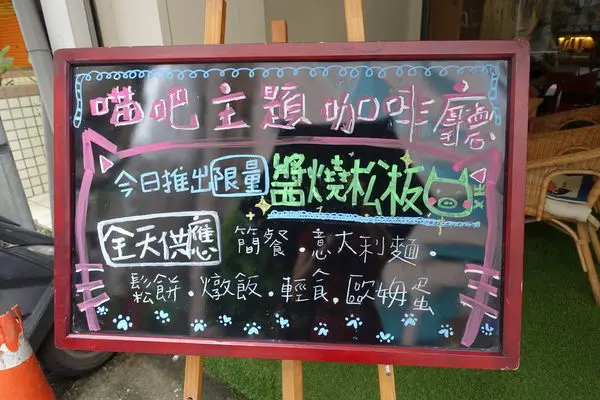 喵吧主題咖啡廳
今日推出限量醬燒松板
全天供應 簡餐．意大利麵．
鬆餅．燉飯．輕食．歐姆蛋